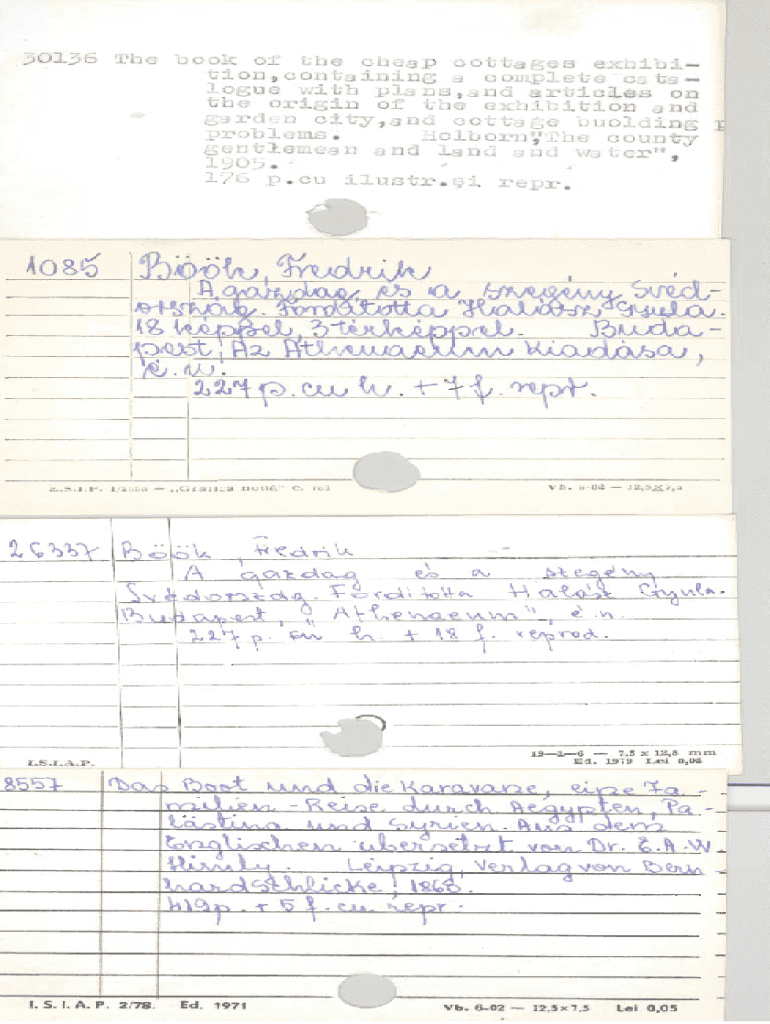 30136 The book of the cheap cottages exhibi-
tion,containing a complete cata-
logue with plans,and articles on
the origin of the exhibition and
garden city,and cottage buolding p
problems. Holborn,"The county
gentlemean and land and water",
1905.
176 p.cu ilustr.şi repr.
1085 Böök, Fredrik
A gazdag és a szegény Svéd-
ország. Fordította Halász Gyula.
18 képpel, 3 térképpel. Buda-
pest, Az Athenaeum Kiadása,
é. n.
227 p. cu h. + 7 f. repr.
Vb. 6-02 — 12,5X7,5
26337 Böök, Fredrik
A gazdag és a szegény
Svédország. Fordította Halász Gyula.
Budapest, "Athenaeum", é. n.
227 p. cu h. + 18 f. reprod.
19—2—6 — 7,5 x 12,5 mm
I.S.I.A.P. Ed. 1979 Lei 0,05
8557 Das Boot und die Karavane, eine Fa-
milien-Reise durch Aegypten, Pa-
lästina und Syrien. Aus dem
Englischen übersetzt von Dr. E. A. W.
Himly. Leipzig, Verlag von Bern
hard Schlicke, 1863.
419 p. + 5 f. cu repr.
I. S. I. A. P. 2/78. Ed. 1971 Vb. 6-02 — 12,5x7,5 Lei 0,05